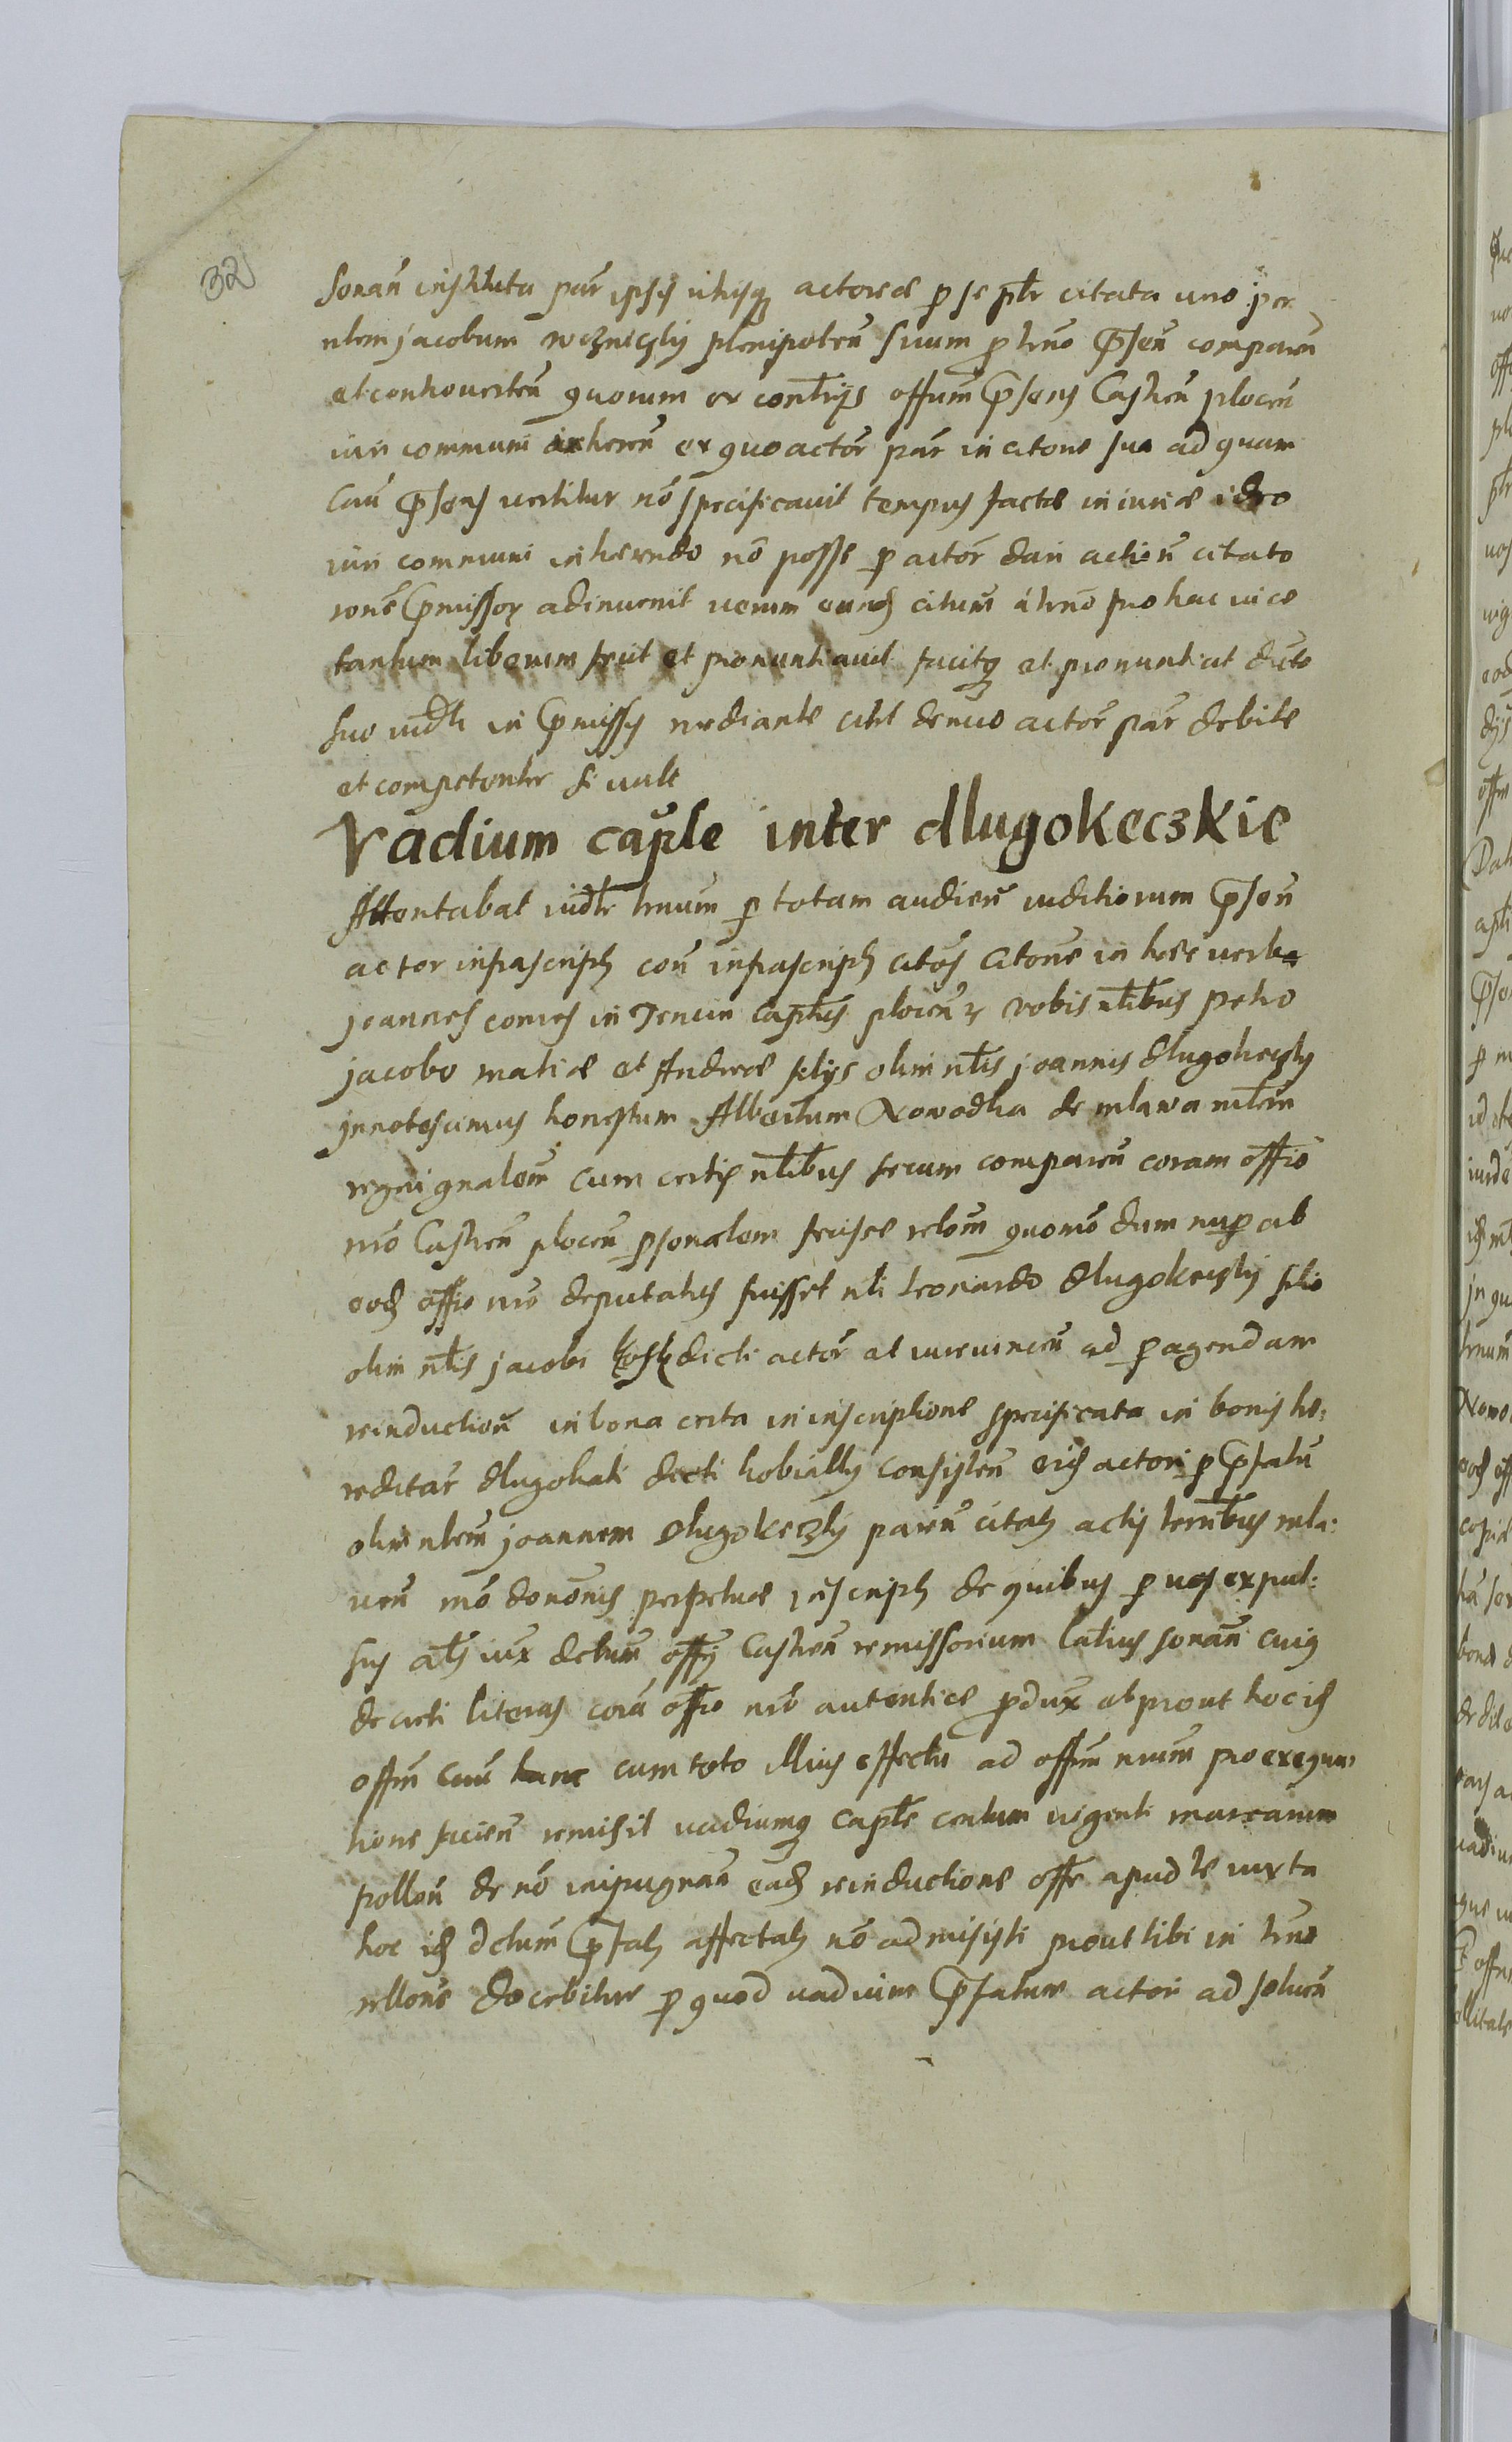 32
sonań instituta par̃ ipsis utrisq actorea p se pl̃r citata uno per
nłem jacobum wczniczky plenipoteñ suum p trno p̃señ compareñ
et controuerteñ quorum ex contr̃ijs offium p̃sens Castreñ ploceñ
iuri communi inhereñ ex quo actor par̃ in citone sua ad quam
Cau p̃sens uertitur nõ specificauit tempus factæ iniuriæ ideo
iuri communi inherendo nõ posse p actor̃ dari actioñ citato
rone p̃missor adinuenit uerum eund citum á trno pro hac uice
tantum liberum fecit et pronuntiauit facitq et pronuntiat ducto
suo iudli in p̃missis mediante citt denuo actor̃ par̃ debite
et competenter si uult
Vadium capl̃e inter dlugokeczkie
Attentabat iudl̃r trnum p totam audień iuditiorum p̃señ
actor infrascript con infrascript citos Citone in hæc uerba
joannes comes in Tencin Capt̃s ploceñ vobis nłibus petro
jacobo matiæ et Andreæ filijs olim nłis joannis dlugokeczky
jnnotescimus honestum Albertum Nowodka de mlawa młem
regni gnalem cum certis nłibus secum compareñ coram offio
nrõ Castreñ ploceñ psonalem fecisse relom quomo dum nup ab
eod offio nro deputatus fuisset nłi leonardo dlugokeczky filio
olim nłis jacobi kosk dicti actor̃ at iureuinceñ ad pagendam
reinductioñ in bona certa in inscriptione specificata in bonis he,
reditar̃ dlugokati dicti kobially consisteñ eid actori p p̃fatũ
olim nłem joannem dlugokeczky pareñ citat actis terrłbus mla,
ueñ mõ dononis perpetuæ jnscript de quibus p uos expul,
sus at iux detum offij Castreñ remissorium latius sonań cuig
decreti literas corã offio nrõ autentice pdux at prout hoc id
offim Cau hanc cum toto illius effectu ad offim nrum pro exequu,
tione facień remisit uadiumq capl̃e centum uigenti marcarum
polloñ de nõ inpugnań ead reinductione offe apud te iuxta
hoc id detum p̃fat affectat nõ admisisti prout tibi in trno
rellone docebitur p quod uadium p̃fatum actori ad solueñ